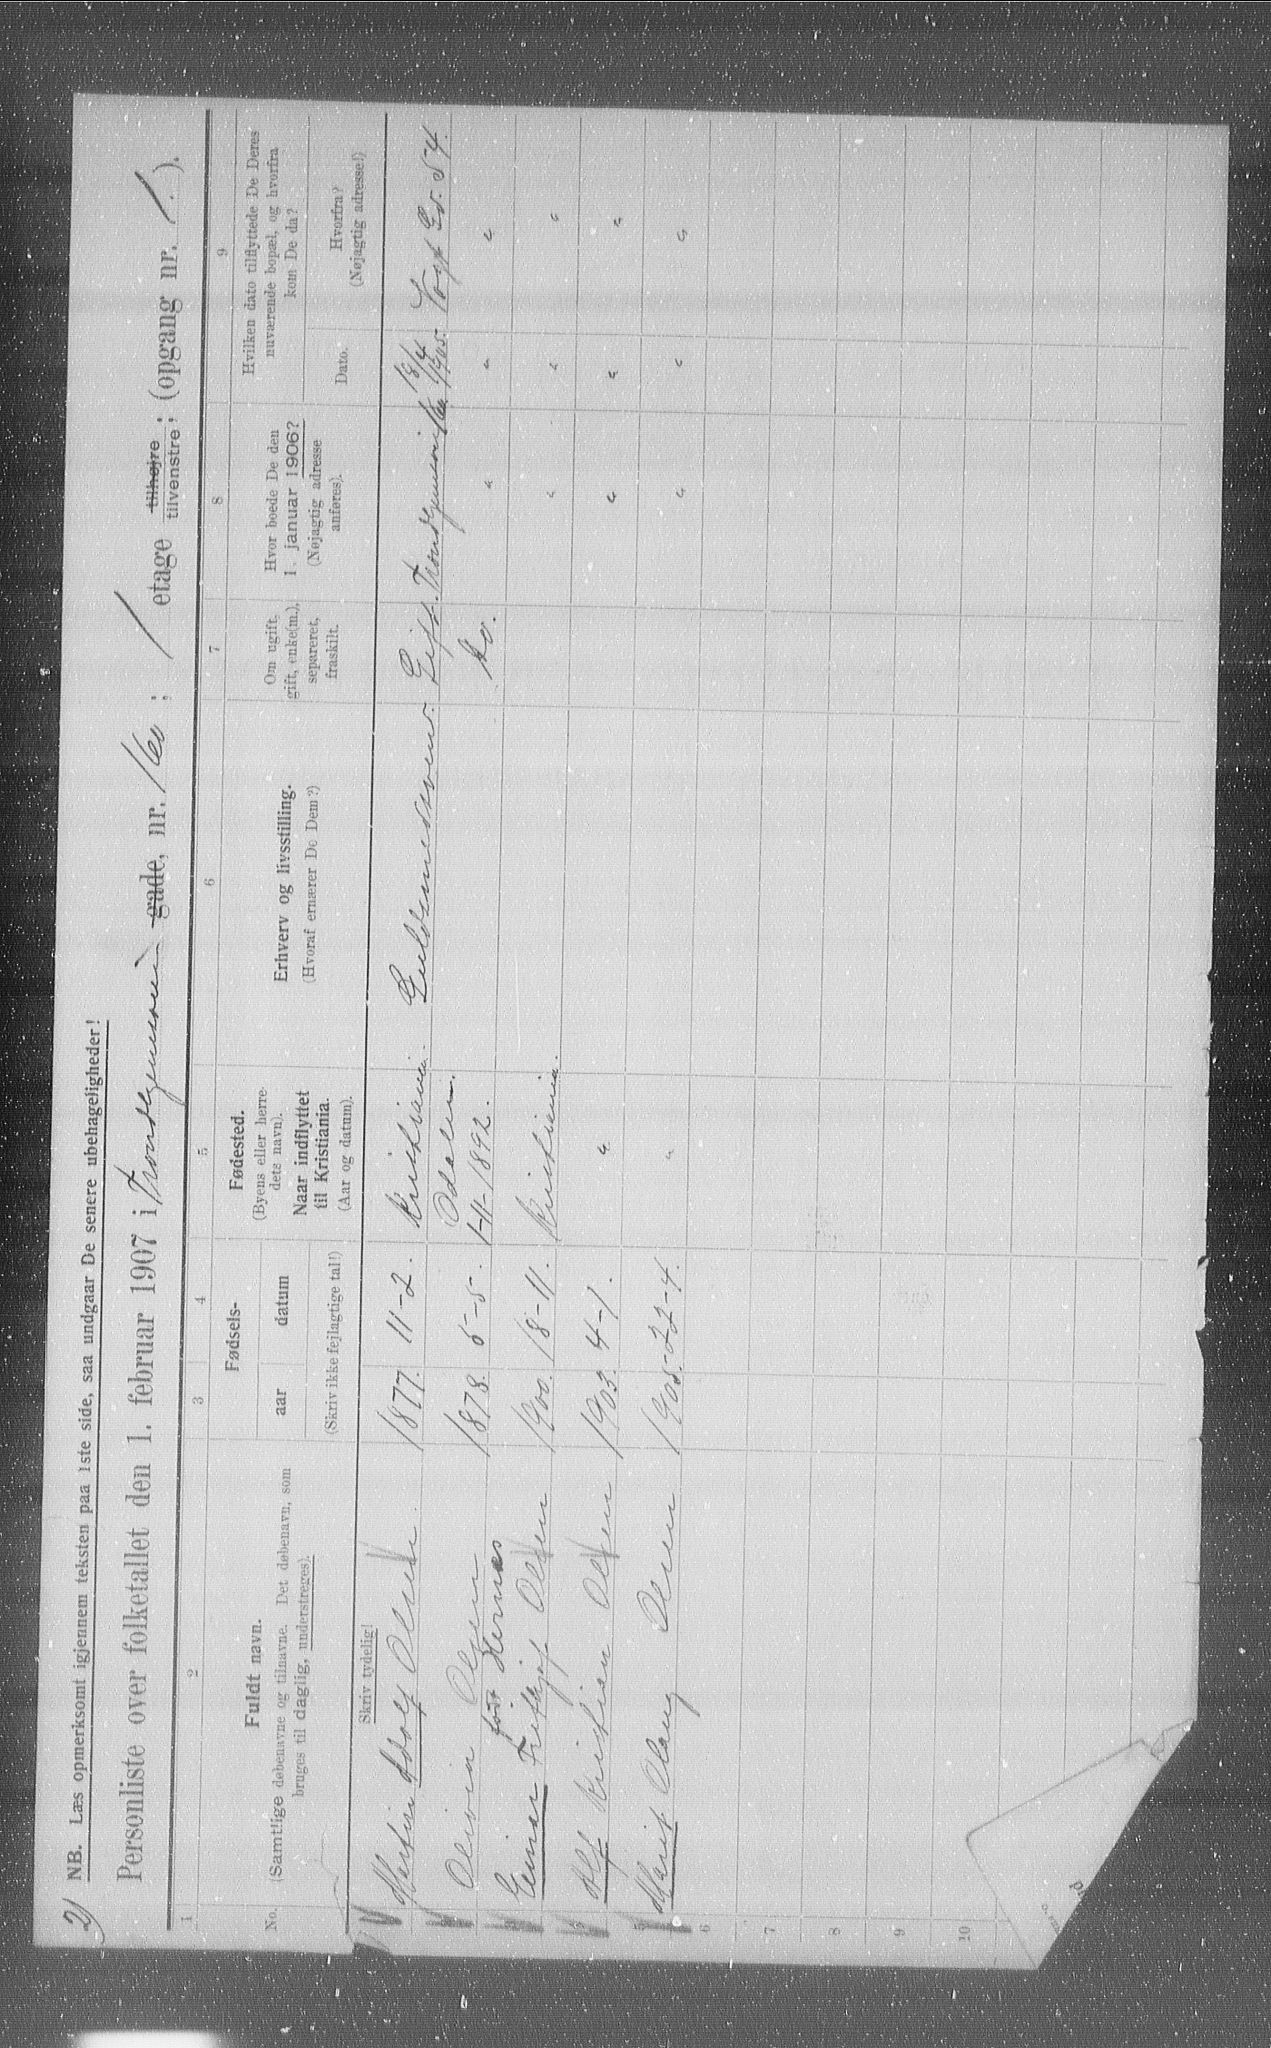 2)
NB. Læs opmerksomt igjennem teksten paa 1ste side, saa undgaar De senere ubehageligheder!
Personliste over folketallet den 1. februar 1907 i Trondhjemsvei gade, nr. 160; 1 etage tilhøjre tilvenstre; (opgang nr. 1.).
1 2 3 4 5 6 7 8 9
No.
Fuldt navn.
(Samtlige døbenavne og tilnavne. Det døbenavn, som
bruges til daglig, understreges).
Skriv tydelig!
Fødsels-
aar datum
(Skriv ikke fejlagtige tal!)
Fødested.
(Byens eller herre-
dets navn).
Naar indflyttet
til Kristiania.
(Aar og datum).
Erhverv og livsstilling.
(Hvoraf ernærer De Dem?)
Om ugift,
gift, enke(m.),
separeret,
fraskilt.
Hvor boede De den
1. januar 1906?
(Nøjagtig adresse
anføres).
Hvilken dato tilflyttede De Deres
nuværende bopæl, og hvorfra
kom De da?
Dato.
Hvorfra?
(Nøjagtig adresse!)
Martin Adolf Olsen. 1877. 11-2. Kristiania. Guldsmedsvend. Gift. Trondhjemsvei 160. 18/4 1905. Vogt Gd. 54.
2 Olivia Olsen 1878. 5-5. Odalen. do. " " "
født Hernæs 1-11-1892.
3 Einar Frithjof Olsen 1900. 18-11. Kristiania. " " "
Alf Kristian Olsen 1903. 4-1. " " " "
5 Marit Olaug Olsen 1905. 22-4. " " " "
6
7
8
9
10